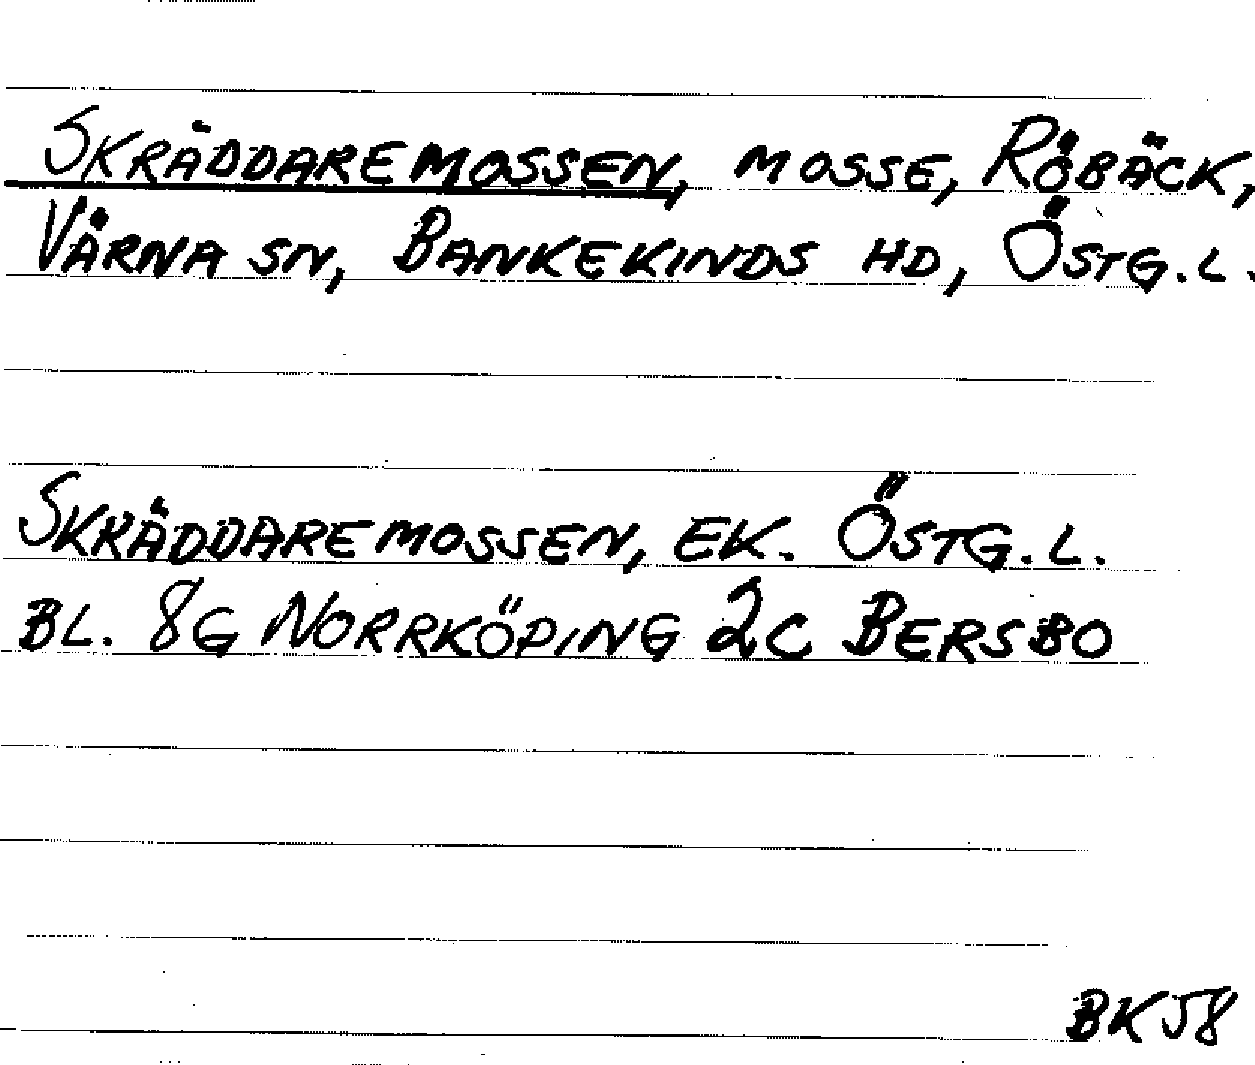 SKRÄDDAREMOSSEN, MOSSE, RÖBÄCK,
VÅRNA SN, BANKEKINDS HD, ÖSTG.L.
SKRÄDDAREMOSSEN, EK. ÖSTG.L.
BL. 8G NORRKÖPING 2C BERSBO
BK58